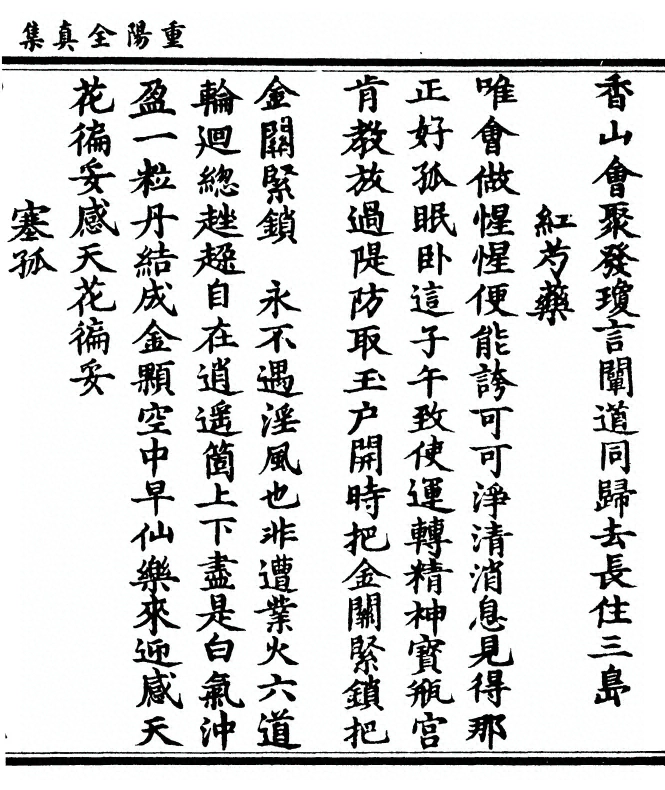 重陽全真集
香山會聚發瓊言闡道同歸去長住三島
紅芍藥
唯會做惺惺便能誇可可淨清消息見得那
正好孤眠卧這子午致使運轉精神寳瓶宫
肯教放過隄防取玉户開時把金關緊鎖把
金關緊鎖　永不遇淫風也非遭業火六道
輪迴緫趓自在逍遥箇上下盡是白氣沖
盈一粒丹結成金顆空中早仙樂來迎感天
花徧妥感天花徧妥
塞孤